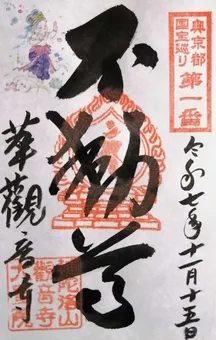 奥京都
国宝巡り
第一番
令和七年十一月十五日
不動尊
華觀音寺
觀音寺